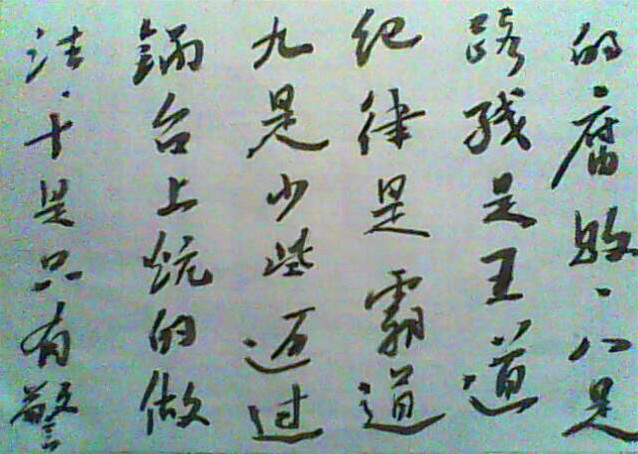 的腐败、八是
路线是王道
纪律是霸道
九是少些迈过
锅台上炕的做
法、十是只有警